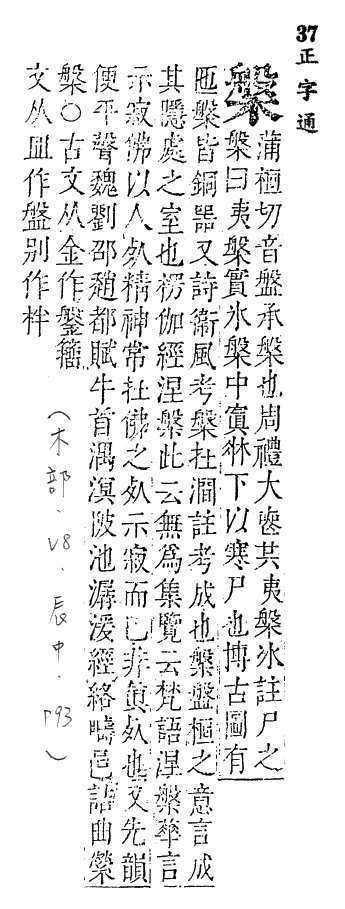 37
正字通
槃
蒲桓切音盤承槃也周禮大喪共夷槃冰註尸之
槃曰夷槃實氷槃中寘牀下以寒尸也博古圖有
匜槃皆銅器又詩衞風考槃在澗註考成也槃盤桓之意言成
其隱處之室也楞伽經涅槃此云無爲集覽云梵語涅槃華言
示寂佛以人死精神常在佛之死示寂而已非眞死也又先韻
便平聲魏劉邵趙都賦牛首渦溟陂池潺湲經絡疇邑詰曲縈
槃○古文从金作鎜籀
文从皿作盤别作柈
（木部．V8．辰中．P93）